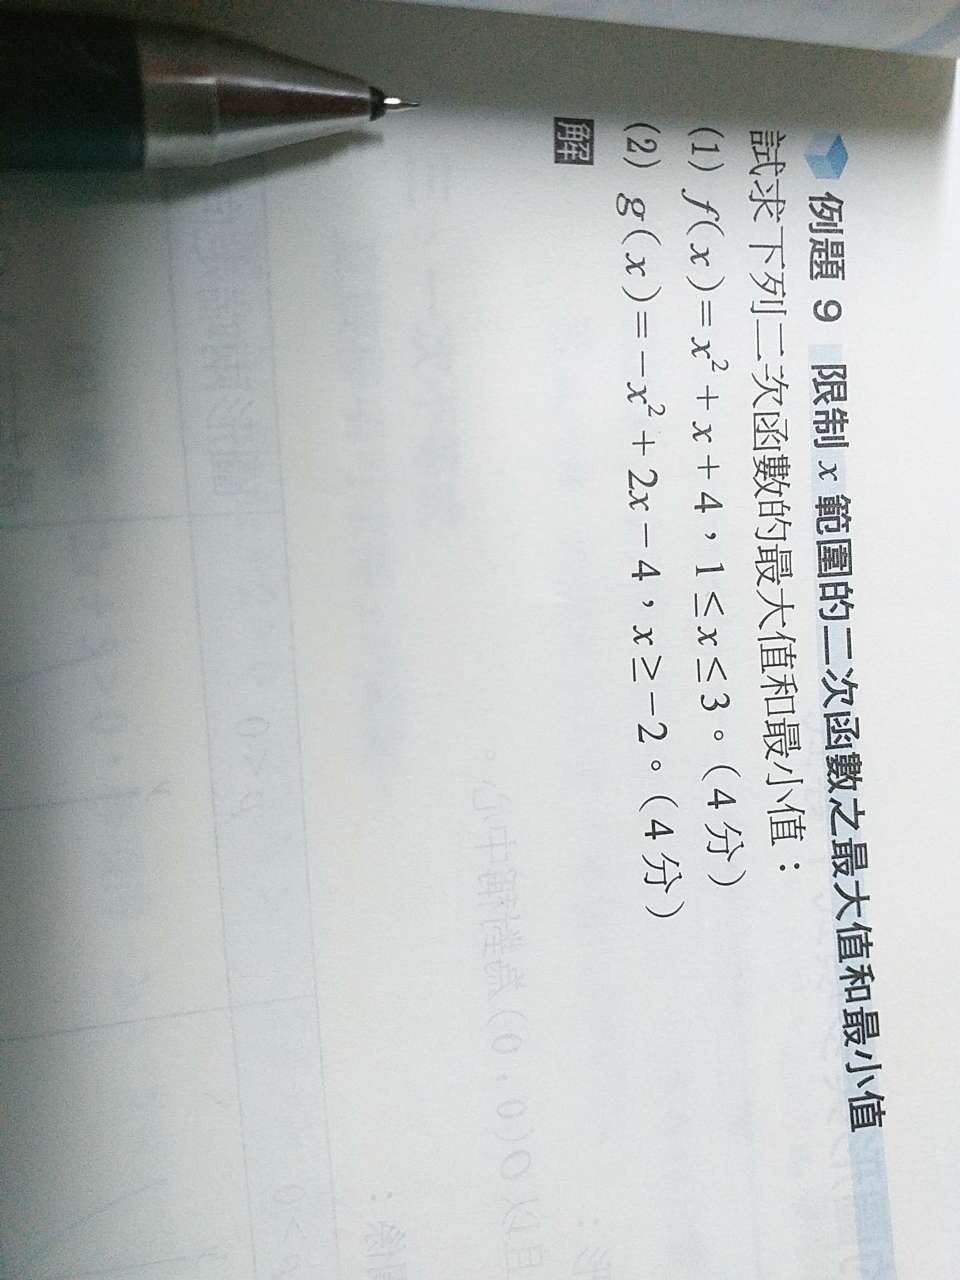 例題 9 限制 x 範圍的二次函數之最大值和最小值
試求下列二次函數的最大值和最小值：
(1) f(x)=x²+x+4，1≤x≤3。(4分)
(2) g(x)=−x²+2x−4，x≥−2。(4分)
解